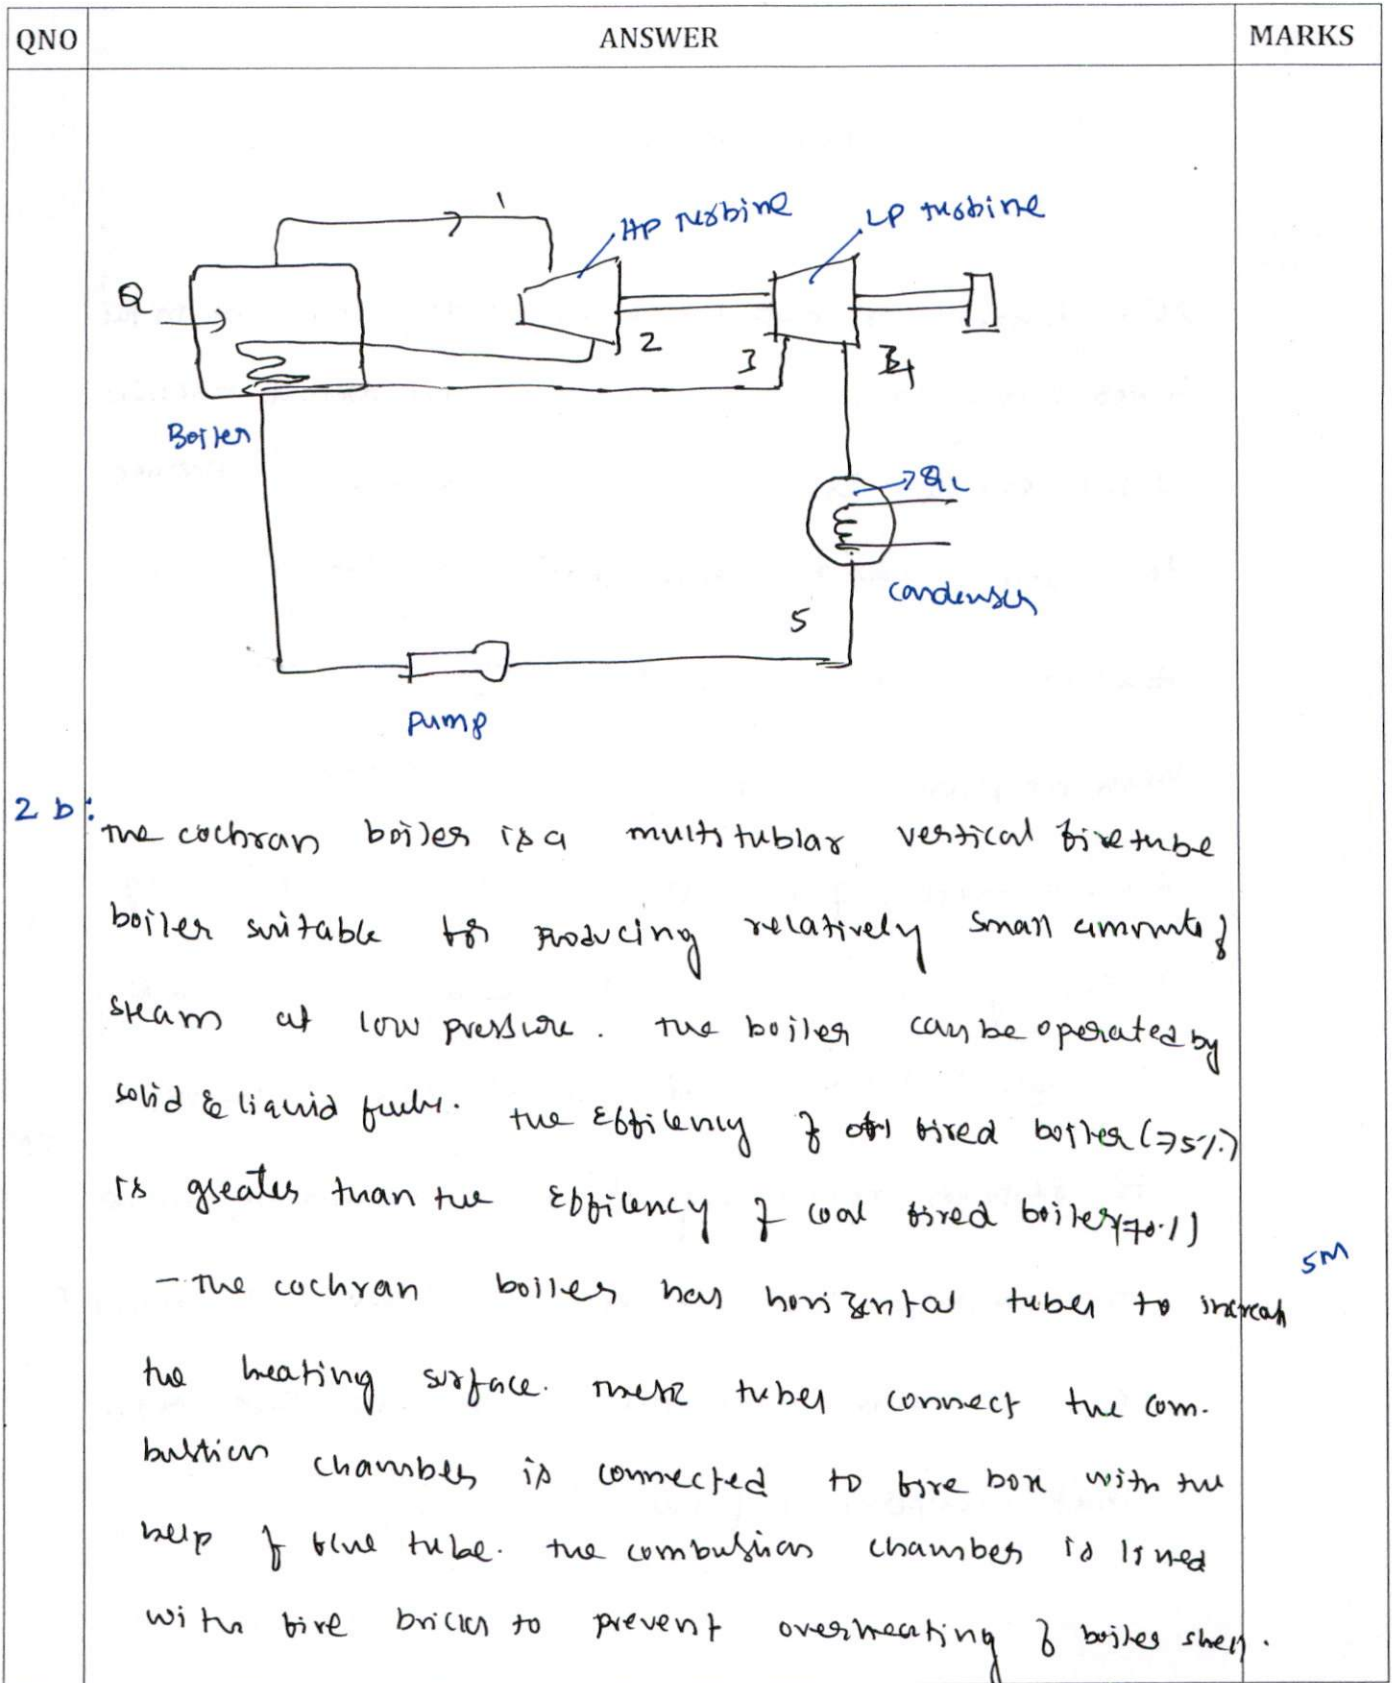 QNO ANSWER MARKS
1
HP turbine
LP turbine
Q
2
3
4
Boiler
QL
condenser
5
pump
2 b:
The cochran boiler is a multi tublar vertical fire tube
boiler suitable for producing relatively small amounts of
steam at low pressure. the boiler can be operated by
solid & liquid fuels. the Effilency of oil fired boiler (75%)
is greater than the Effilency of coal fired boiler (70%)
- The cochran boiler has horizental tubes to increase
5M
the heating surface. These tubes connect the com-
bustion chamber is connected to fire box with the
help of flue tube. the combustion chamber is lined
with fire bricks to prevent overheating of boiler shell.